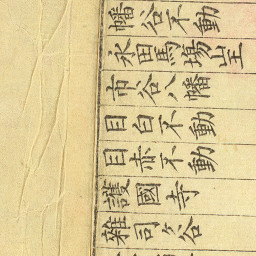 幡谷不動
永田馬場山王
市谷八幡
目白不動
目赤不動
護國寺
雜司ヶ谷